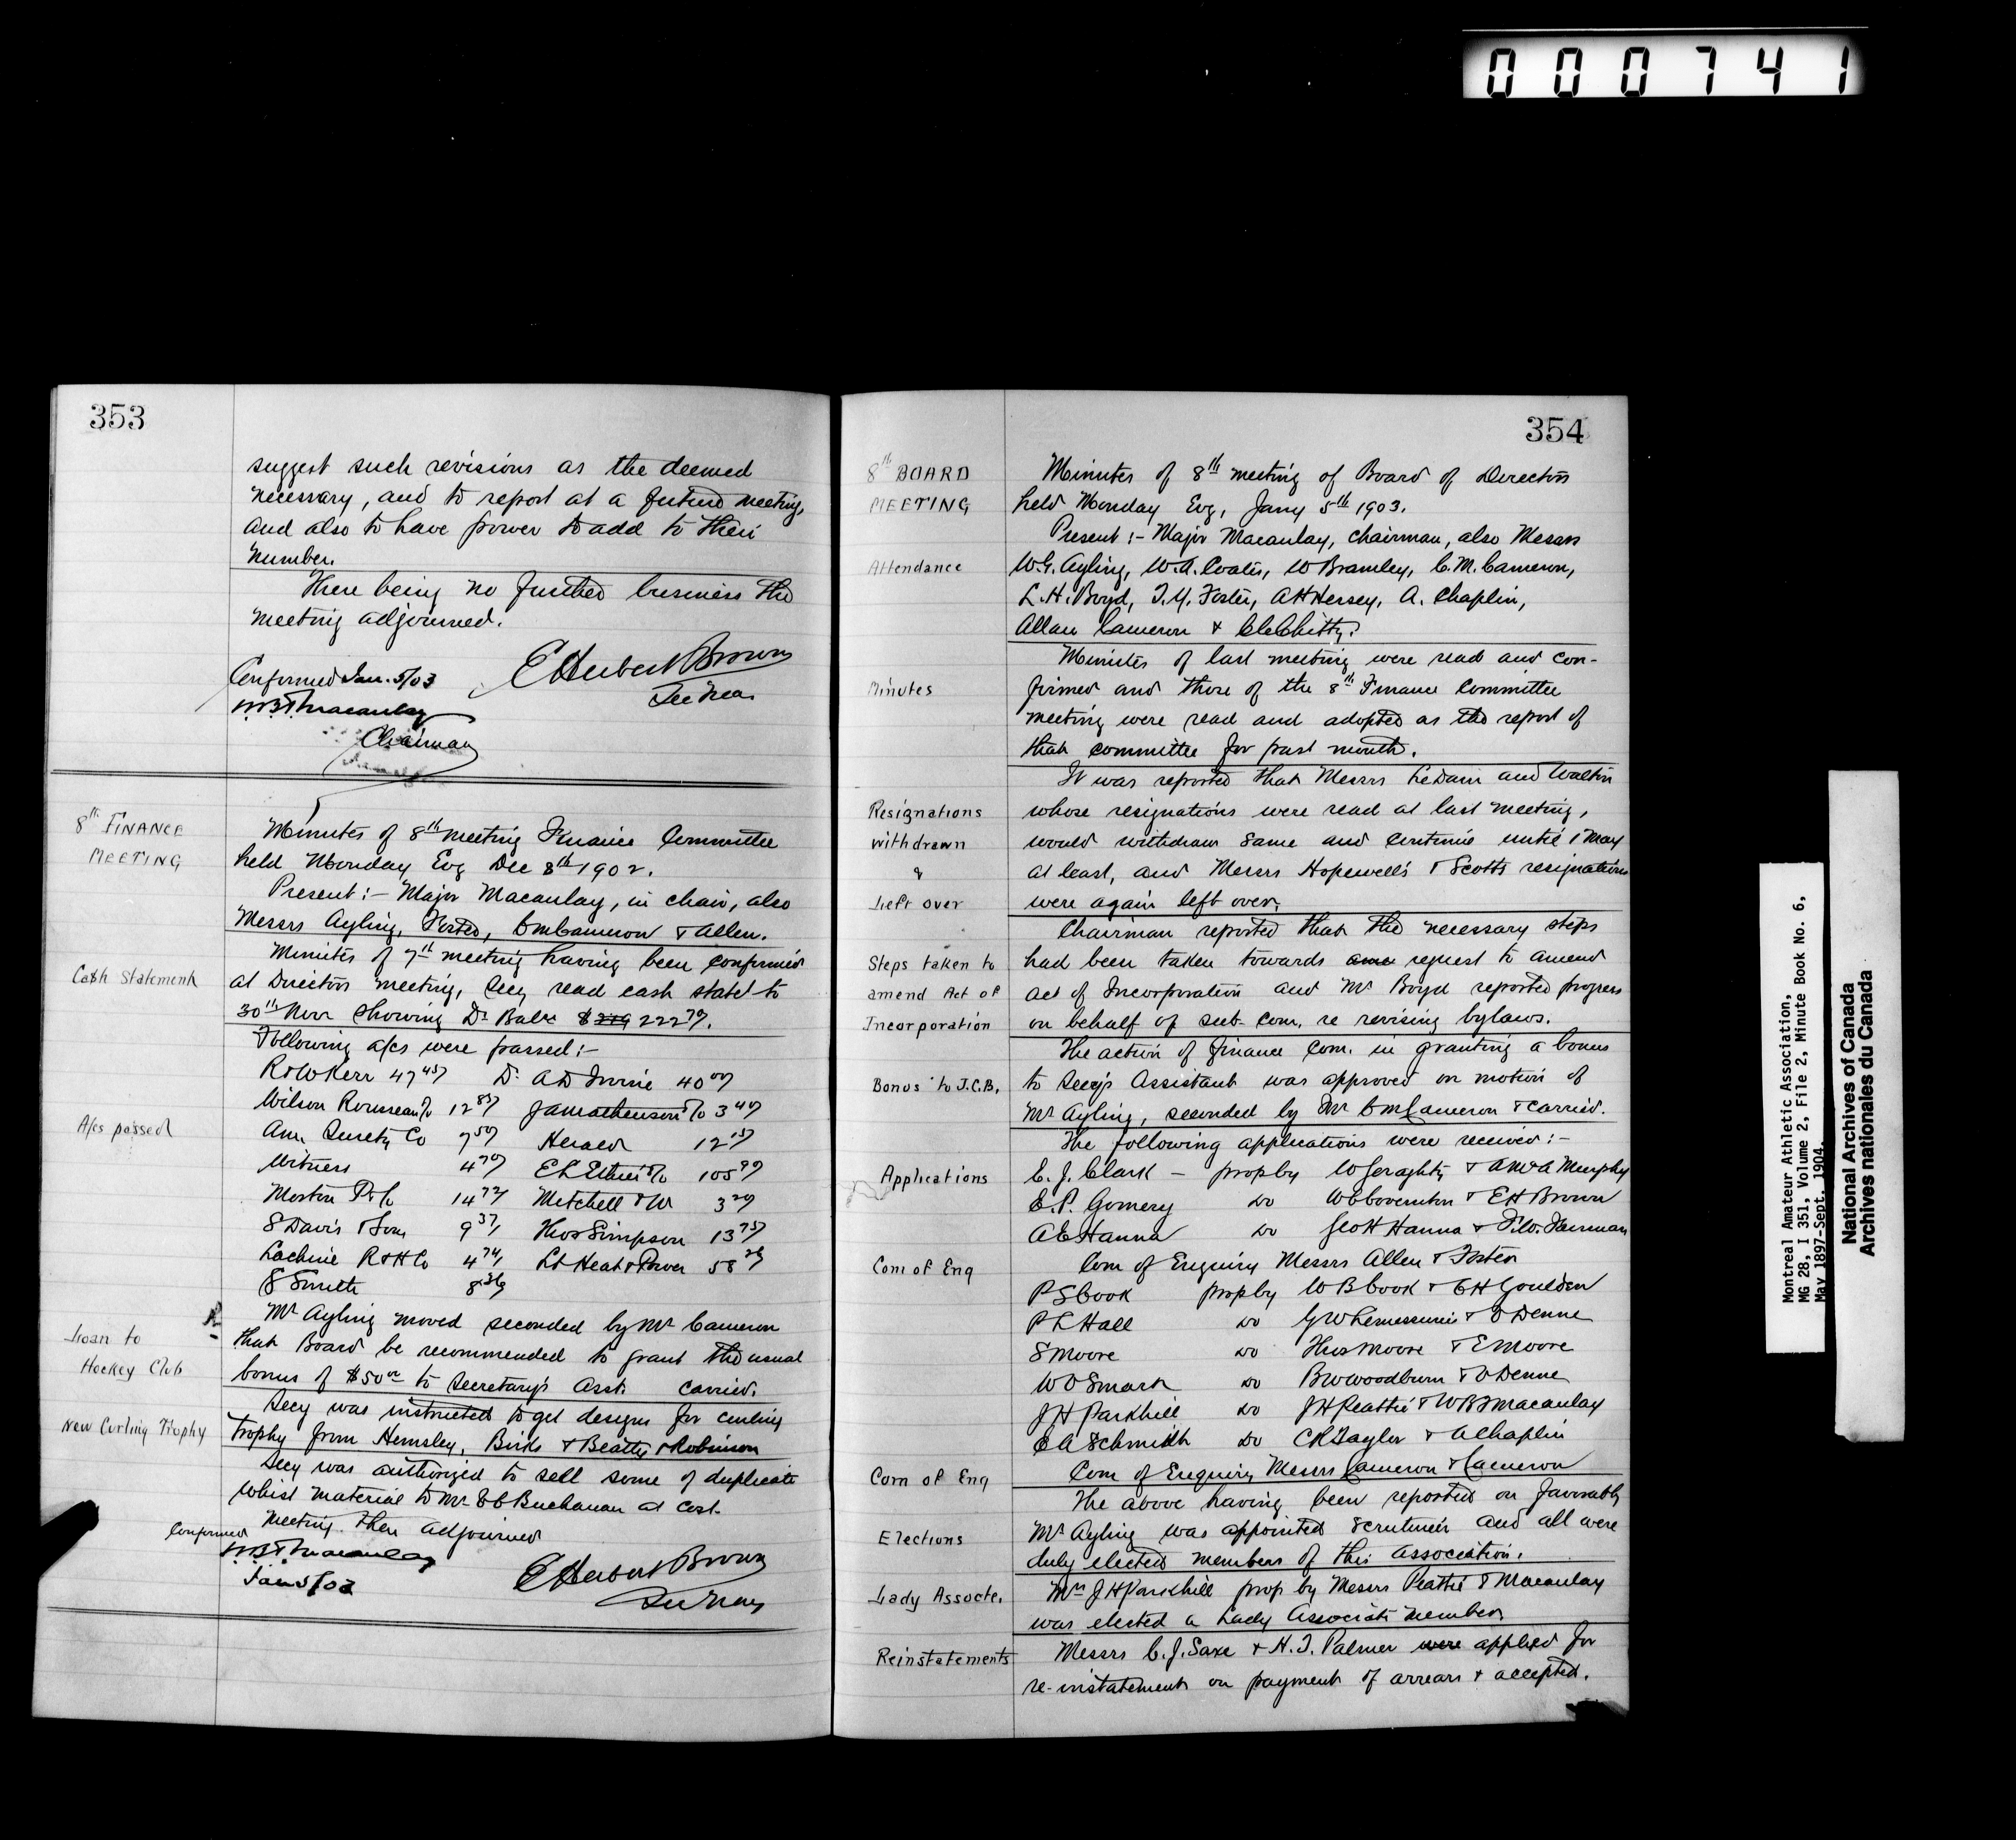 000741
353
suggest such revisions as the deemed
necessary, and to report at a future meeting,
and also to have power to add to their
number.
There being no further business the
meeting adjourned.
Confirmed Jan. 5/03
E Herbert Brown
Sec Treas
W.B.T. Macaulay
Chairman
8th FINANCE
MEETING
Minutes of 8th meeting Finance Committee
held Monday Evg Dec 8th 1902.
Present:- Major Macaulay, in chair, also
Messrs Ayling, Foster, CM Cameron & Allen.
Cash Statement
Minutes of 7th meeting having been confirmed
at Directors meeting, Secy read cash statet to
30th Novr showing Dr Balce $ 219 222 79.
Following a/cs were passed:-
A/cs passed
R & W Kerr 47 45 Dr A D Irvine 40 00
Wilson Rousseau Co 12 85 J A Mathewson Co 3 40
Am. Surety Co 7 50 Herald 12 15
Witness 4 70 E L Ethier Co 105 99
Morton P & Co 14 72 Mitchell & W 3 20
S Davis & Sons 9 37 Thos Simpson 13 75
Lachine R & H Co 4 74 Lt Heat & Power 58
S Smith 8 36
Loan to
Hockey Club
Mr Ayling moved seconded by Mr Cameron
that Board be recommended to grant the usual
bonus of $50 00 to Secretary's Asst. carried.
New Curling Trophy
Secy was instructed to get designs for curling
trophy from Hemsley, Birks & Beatty & Robinson
Secy was authorized to sell some of duplicate
whist material to Mr Buchanan at cost.
Meeting then adjourned
Confirmed
W.B.T. Macaulay
Jan 5/03
E Herbert Brown
Sec Treas
354
8th BOARD
MEETING
Minutes of 8th meeting of Board of Directors
held Monday Evg, Jany 5th 1903.
Attendance
Present:- Major Macaulay, chairman, also Messrs
W.G. Ayling, W.A. Coates, W Bramley, C.M. Cameron,
L.H. Boyd, T.Y. Foster, A H Hersey, A. Chaplin,
Allan Cameron & Chitty.
Minutes
Minutes of last meeting were read and con-
firmed and those of the 8th Finance Committee
meeting were read and adopted as the report of
that committee for past month.
Resignations
withdrawn
&
Left over
It was reported that Messrs LeDain and Walton
whose resignations were read at last meeting,
would withdraw same and continue until 1 May
at least, and Messrs Hopewell's & Scotts resignations
were again left over.
Steps taken to
amend Act of
Incorporation
Chairman reported that the necessary steps
had been taken towards ame request to amend
act of Incorporation and Mr Boyd reported progress
on behalf of sub-com. re revising bylaws.
Bonus to J.C.B.
The action of finance com. in granting a bonus
to Secy's Assistant was approved on motion of
Mr Ayling, seconded by Mr CM Cameron & carried.
Applications
The following applications were received:-
C. J. Clark - prop by W Geraghty & A McA Murphy
E. P. Gomery do W C Coverton & E H Brown
A E Hanna do Geo H Hanna & F.W. Fairman
Com of Enq
Com of Enquiry Messrs Allen & Foster
P S Cook prop by W B Cook & C H Goulden
P L Hall do G W Lemessurier & D Denne
S Moore do Thos Moore & E Moore
W O Smart do B W Woodburn & D Denne
J H Parkhill do J H Peattie & W B T Macaulay
E A Schmidh do C R Taylor & A Chaplin
Com of Enq
Com of Enquiry Messrs Cameron & Cameron
Elections
The above having been reported on favorably
Mr Ayling was appointed scrutineer and all were
duly elected members of this association.
Lady Associte.
Mrs J H Parkhill prop by Messrs Peattie & Macaulay
was elected a Lady Associate member.
Reinstatements
Messrs C. J. Saxe & H. J. Palmer were applied for
re-instatement on payment of arrears & accepted.
Montreal Amateur Athletic Association,
MG 28, I 351, Volume 2, File 2, Minute Book No. 6,
May 1897-Sept. 1904.
National Archives of Canada
Archives nationales du Canada